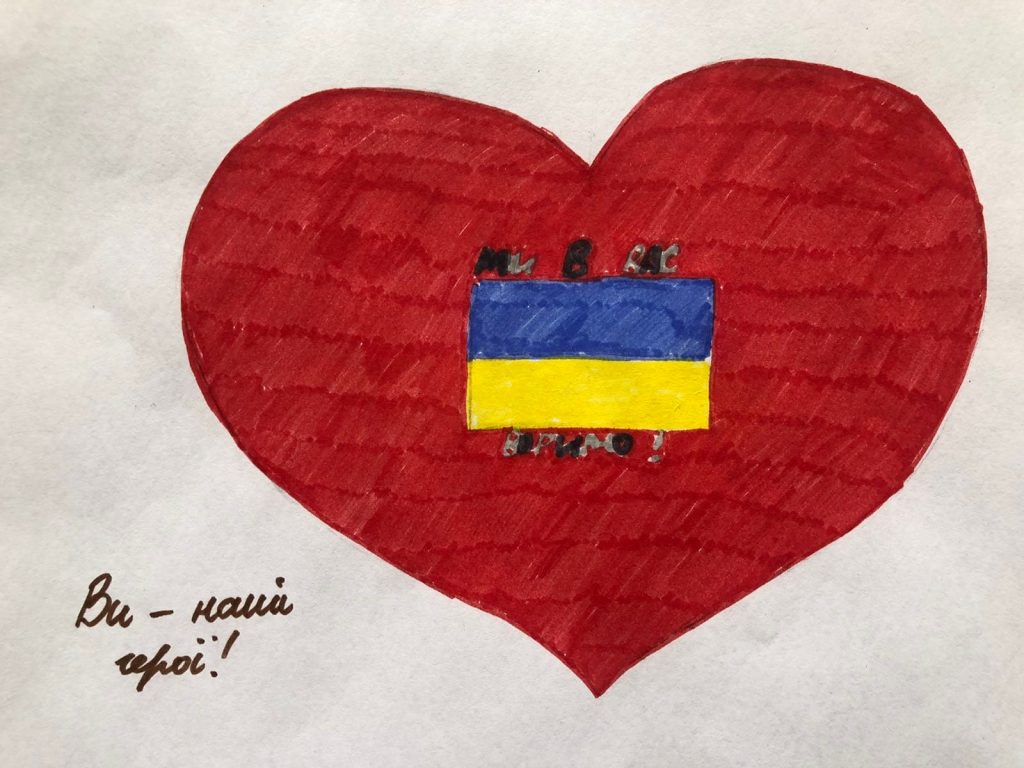 МИ В ВАС
ВІРИМО!
Ви - наші
герої!